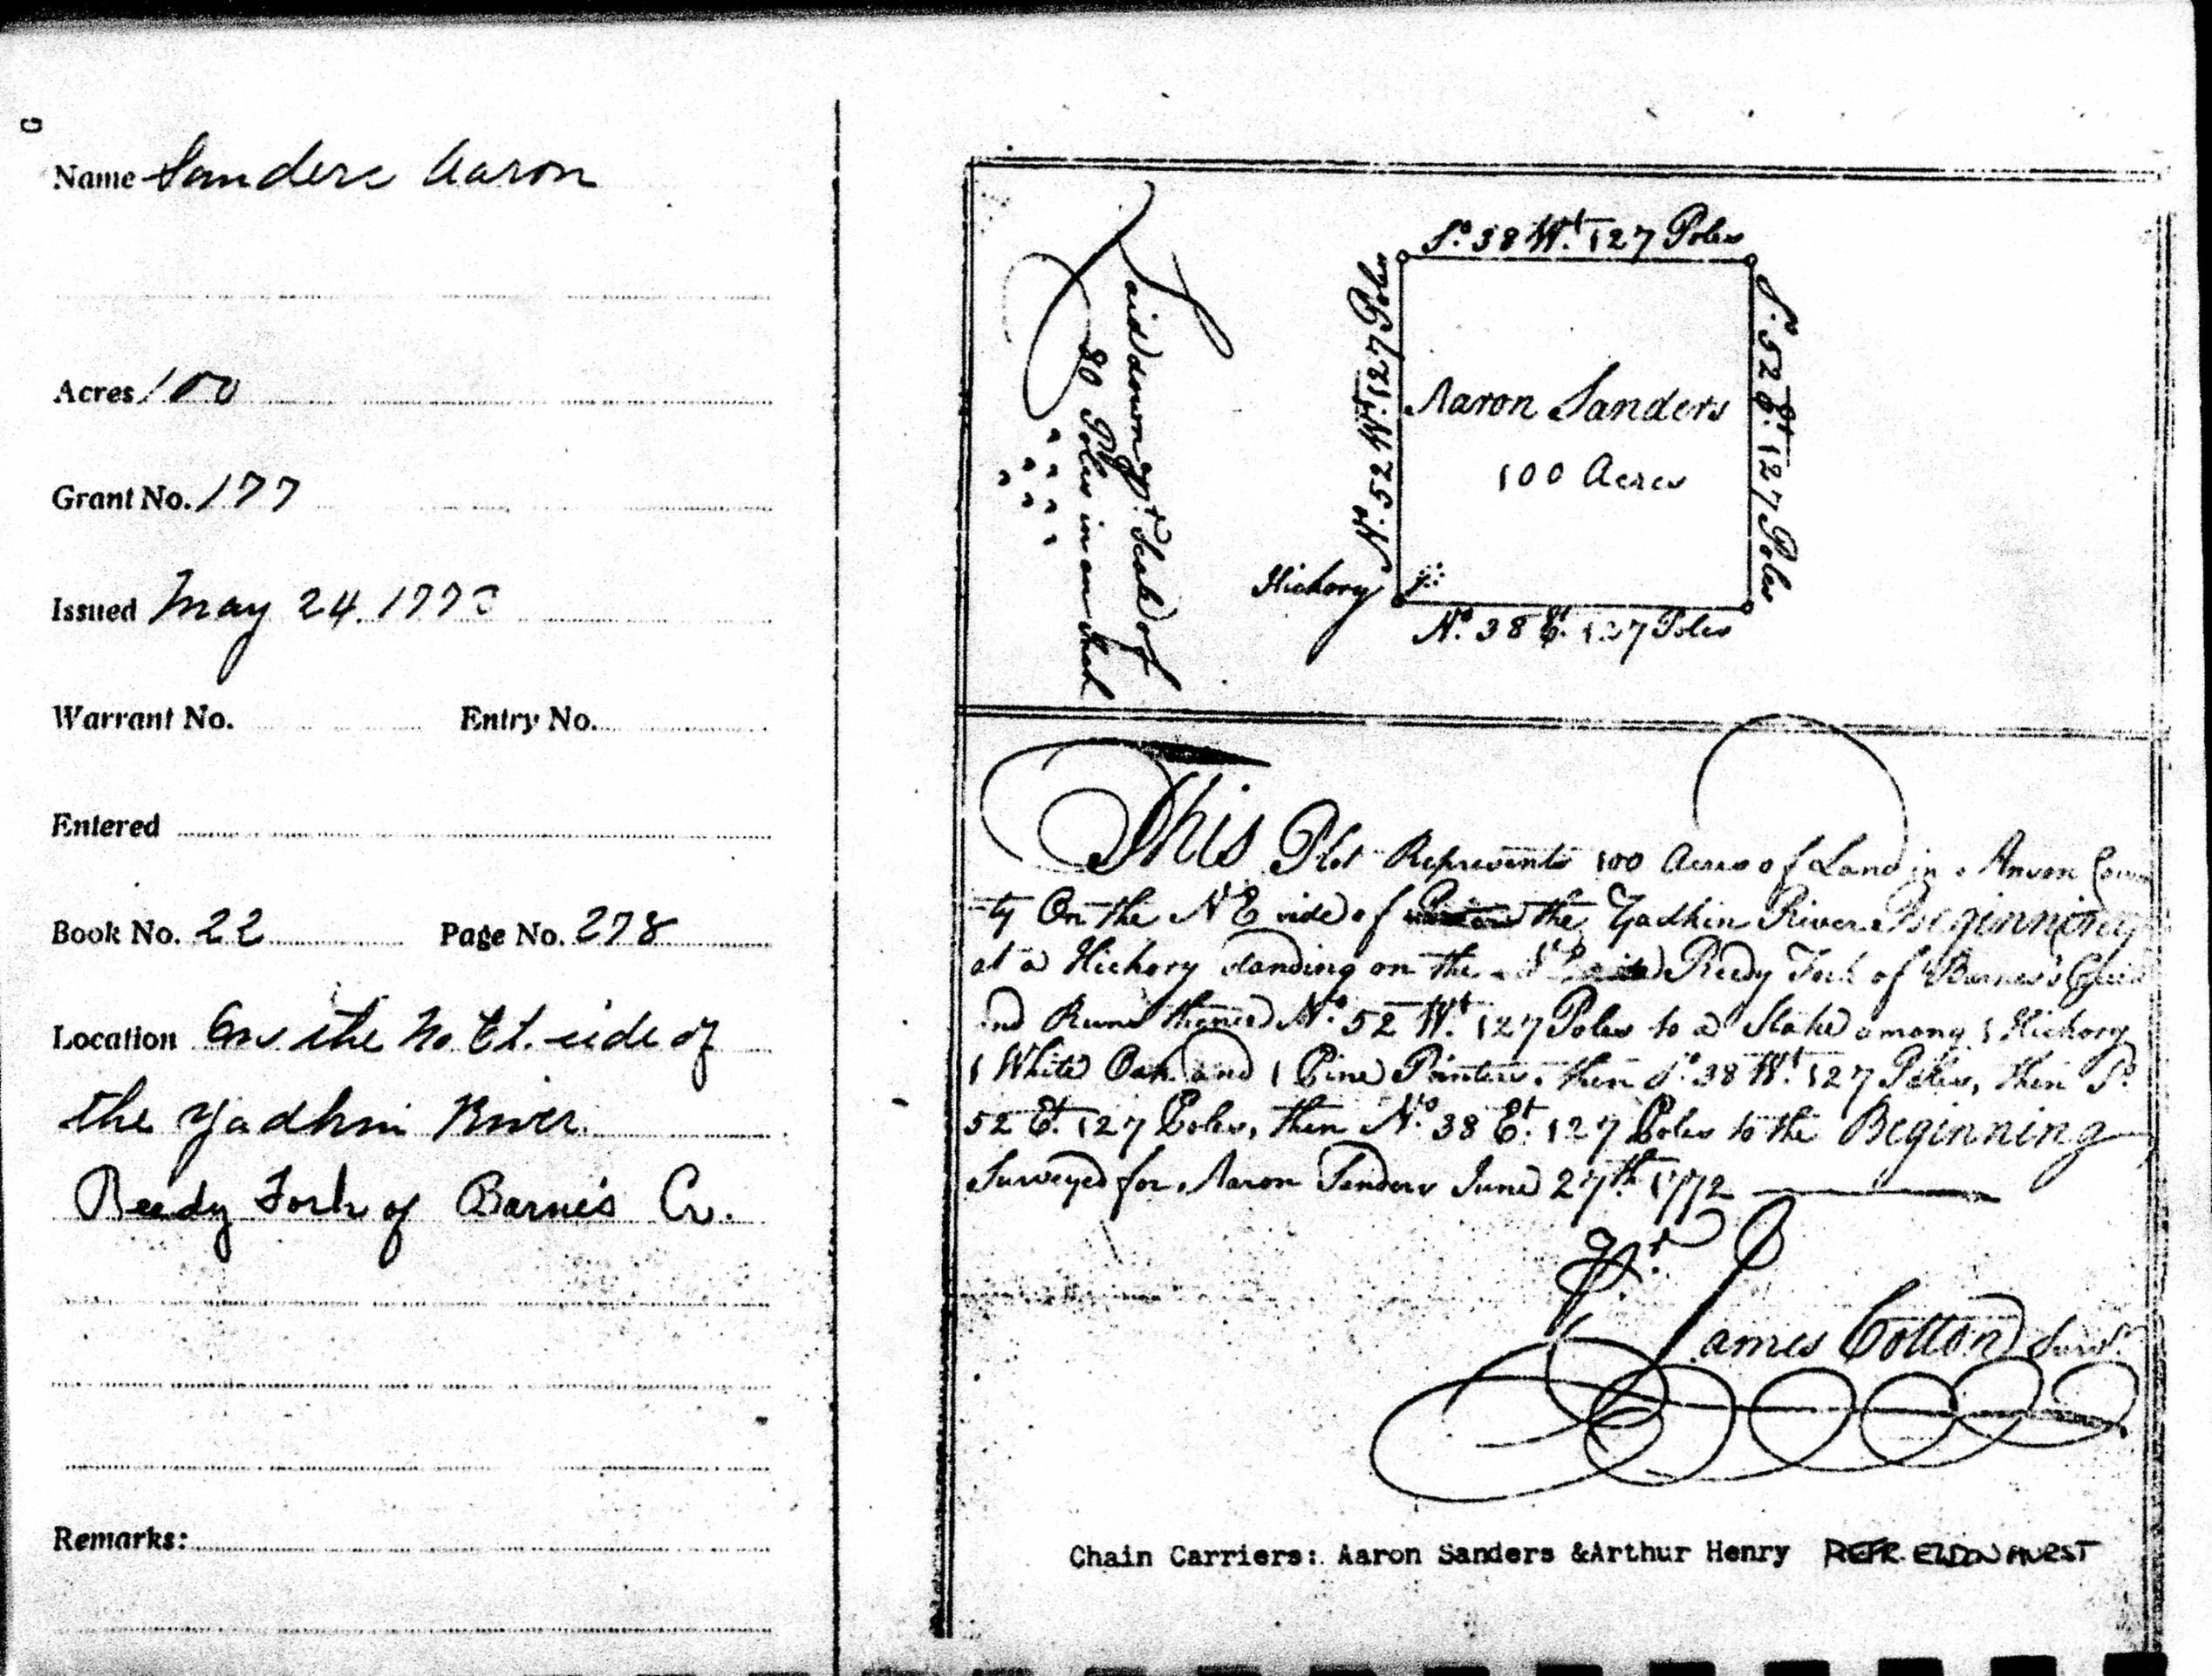 G
Name Sanders Aaron
Acres 100
Grant No. 177
Issued May 24. 1773
Warrant No. Entry No.
Entered
Book No. 22 Page No. 278
Location On the No Et. side of
the Yadkin River
Reedy Fork of Barnes Cr.
Remarks:
Laid down pr. Scale of
80 Poles in an Inch
So. 38 Wt. 127 Poles
No. 52 Wt. 127 Poles
So. 52 Et. 127 Poles
Aaron Sanders
100 Acres
Hickory
No. 38 Et. 127 Poles
This Plot Represents 100 Acres of Land in Anson Coun
-ty On the N E side of the Yadkin River Beginning
at a Hickory standing on the Reedy Fork of Barnes's Creek
and Runs thence No. 52 Wt. 127 Poles to a Stake among 1 Hickory
1 White Oak and 1 Pine Pointers, then So. 38 Wt. 127 Poles, then So.
52 Et. 127 Poles, then No. 38 Et. 127 Poles to the Beginning
Surveyed for Aaron Sanders June 27th. 1772
Pr.
James Cotton Survr.
Chain Carriers: Aaron Sanders &Arthur Henry REFR. ELDON HURST